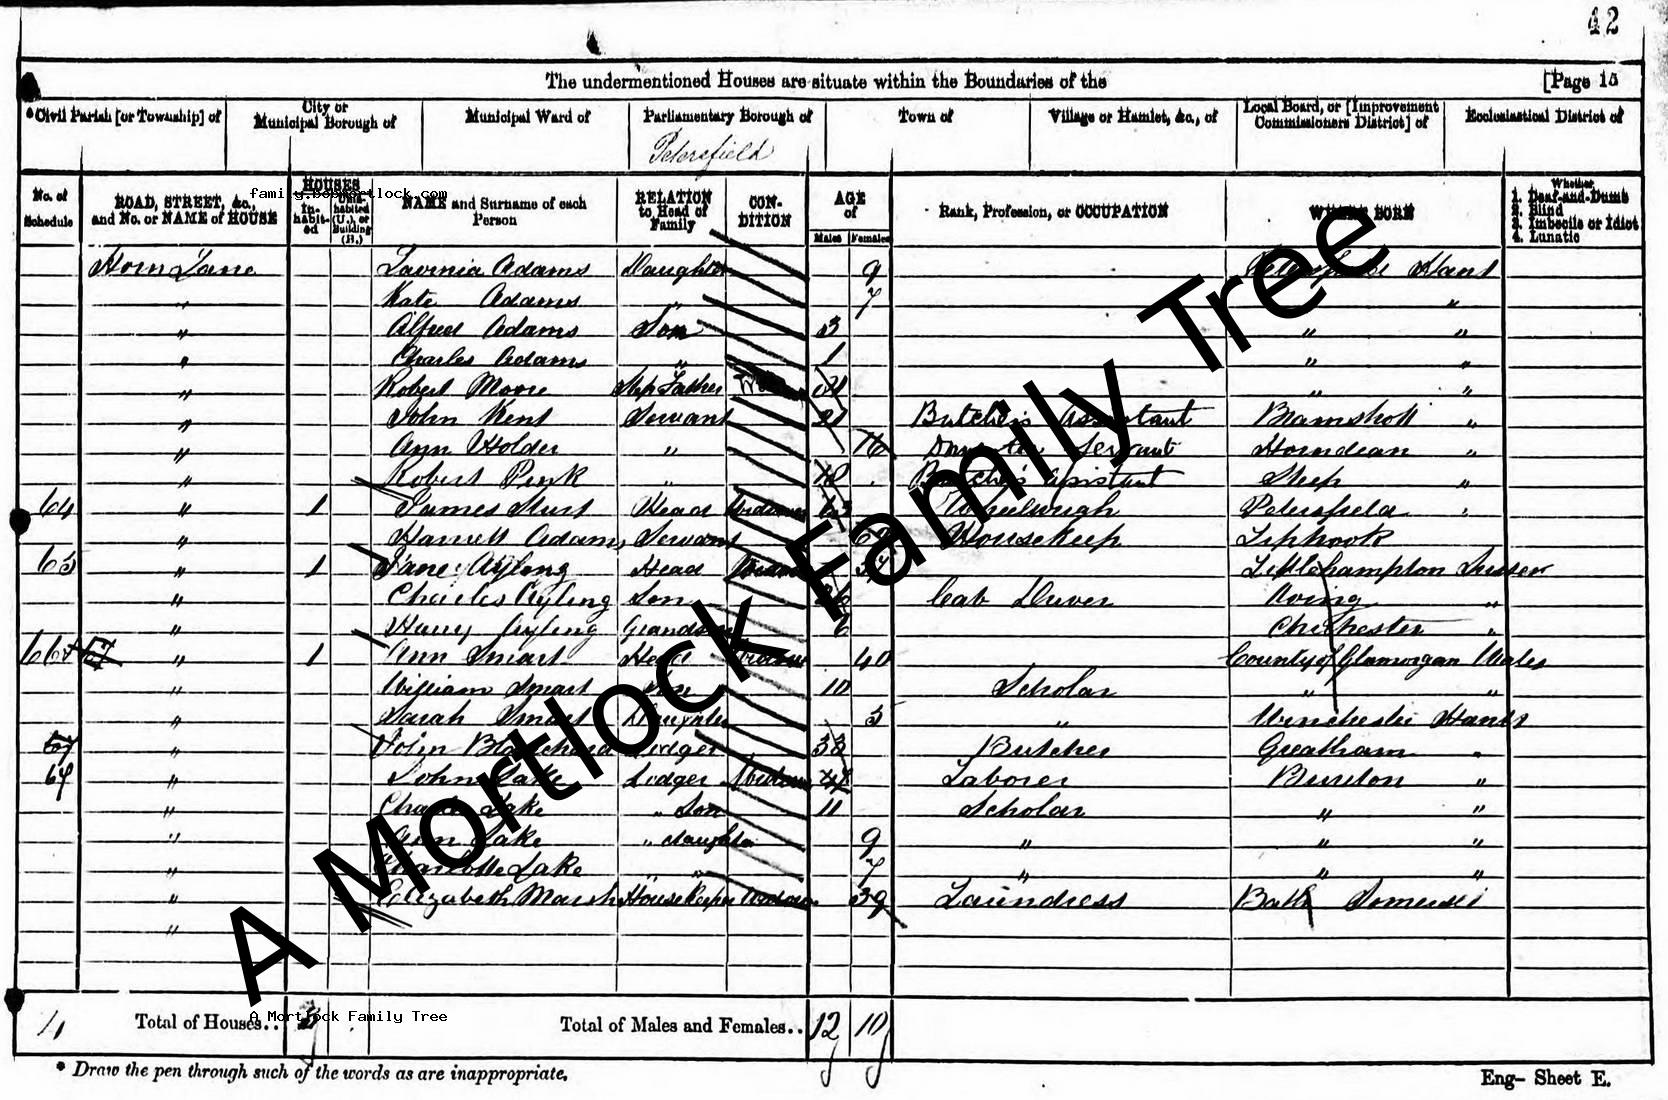 42
The undermentioned Houses are situate within the Boundaries of the [Page 15
*Civil Parish [or Township] of
City or Municipal Borough of
Municipal Ward of
Parliamentary Borough of
Petersfield
Town of
Village or Hamlet, &c., of
Local Board, or [Improvement Commissioners District] of
Ecclesiastical District of
No. of Schedule
ROAD, STREET, &c., and No. or NAME of HOUSE
HOUSES
In-habit-ed
Unin-habited (U.), or Building (B.)
NAME and Surname of each Person
RELATION to Head of Family
CON-DITION
AGE of
Males Females
Rank, Profession, or OCCUPATION
WHERE BORN
Whether
1. Deaf-and-Dumb
2. Blind
3. Imbecile or Idiot
4. Lunatic
family.bobmortlock.com
Horn Lane Lavinia Adams Daughter 9 Hants
" Kate Adams " 7 "
" Alfred Adams Son 3 " "
" Charles Adams " 1 " "
" Robert Moore Step Father " "
" John Kent Servant 21 Butcher's Assistant Bramshott "
" Ann Holder " 16 Servant Horndean "
" Robert Pink " 18 Butcher's Assistant Steep "
64 " 1 James Head Widower 63 Wheelwright Petersfield "
" Harriett Adams Servant 62 Housekeep Liphook
65 " 1 Ayling Head Widow Littlehampton Sussex
" Charles Ayling Son Cab Driver Aving "
" Harry Ayling Grandson 6 Chichester "
66 " 1 Ann Smart Head 40 County of Glamorgan Wales
" William Smart Son 10 Scholar " "
" Sarah Smart Daughter 5 " Winchester Hants
" John Blanchard Lodger 33 Butcher Greatham "
67 " John Lake Lodger Widower Laborer Buriton "
" Charles Lake " Son 11 Scholar " "
" Ann Lake " daughter 9 " " "
" Charlotte Lake " " 7 " " "
" Elizabeth Marsh Housekeeper Widow 39 Laundress Bath Somerset
"
4 Total of Houses.. Total of Males and Females.. 12 10
A Mortlock Family Tree
A Mortlock Family Tree
* Draw the pen through such of the words as are inappropriate.
Eng- Sheet E.